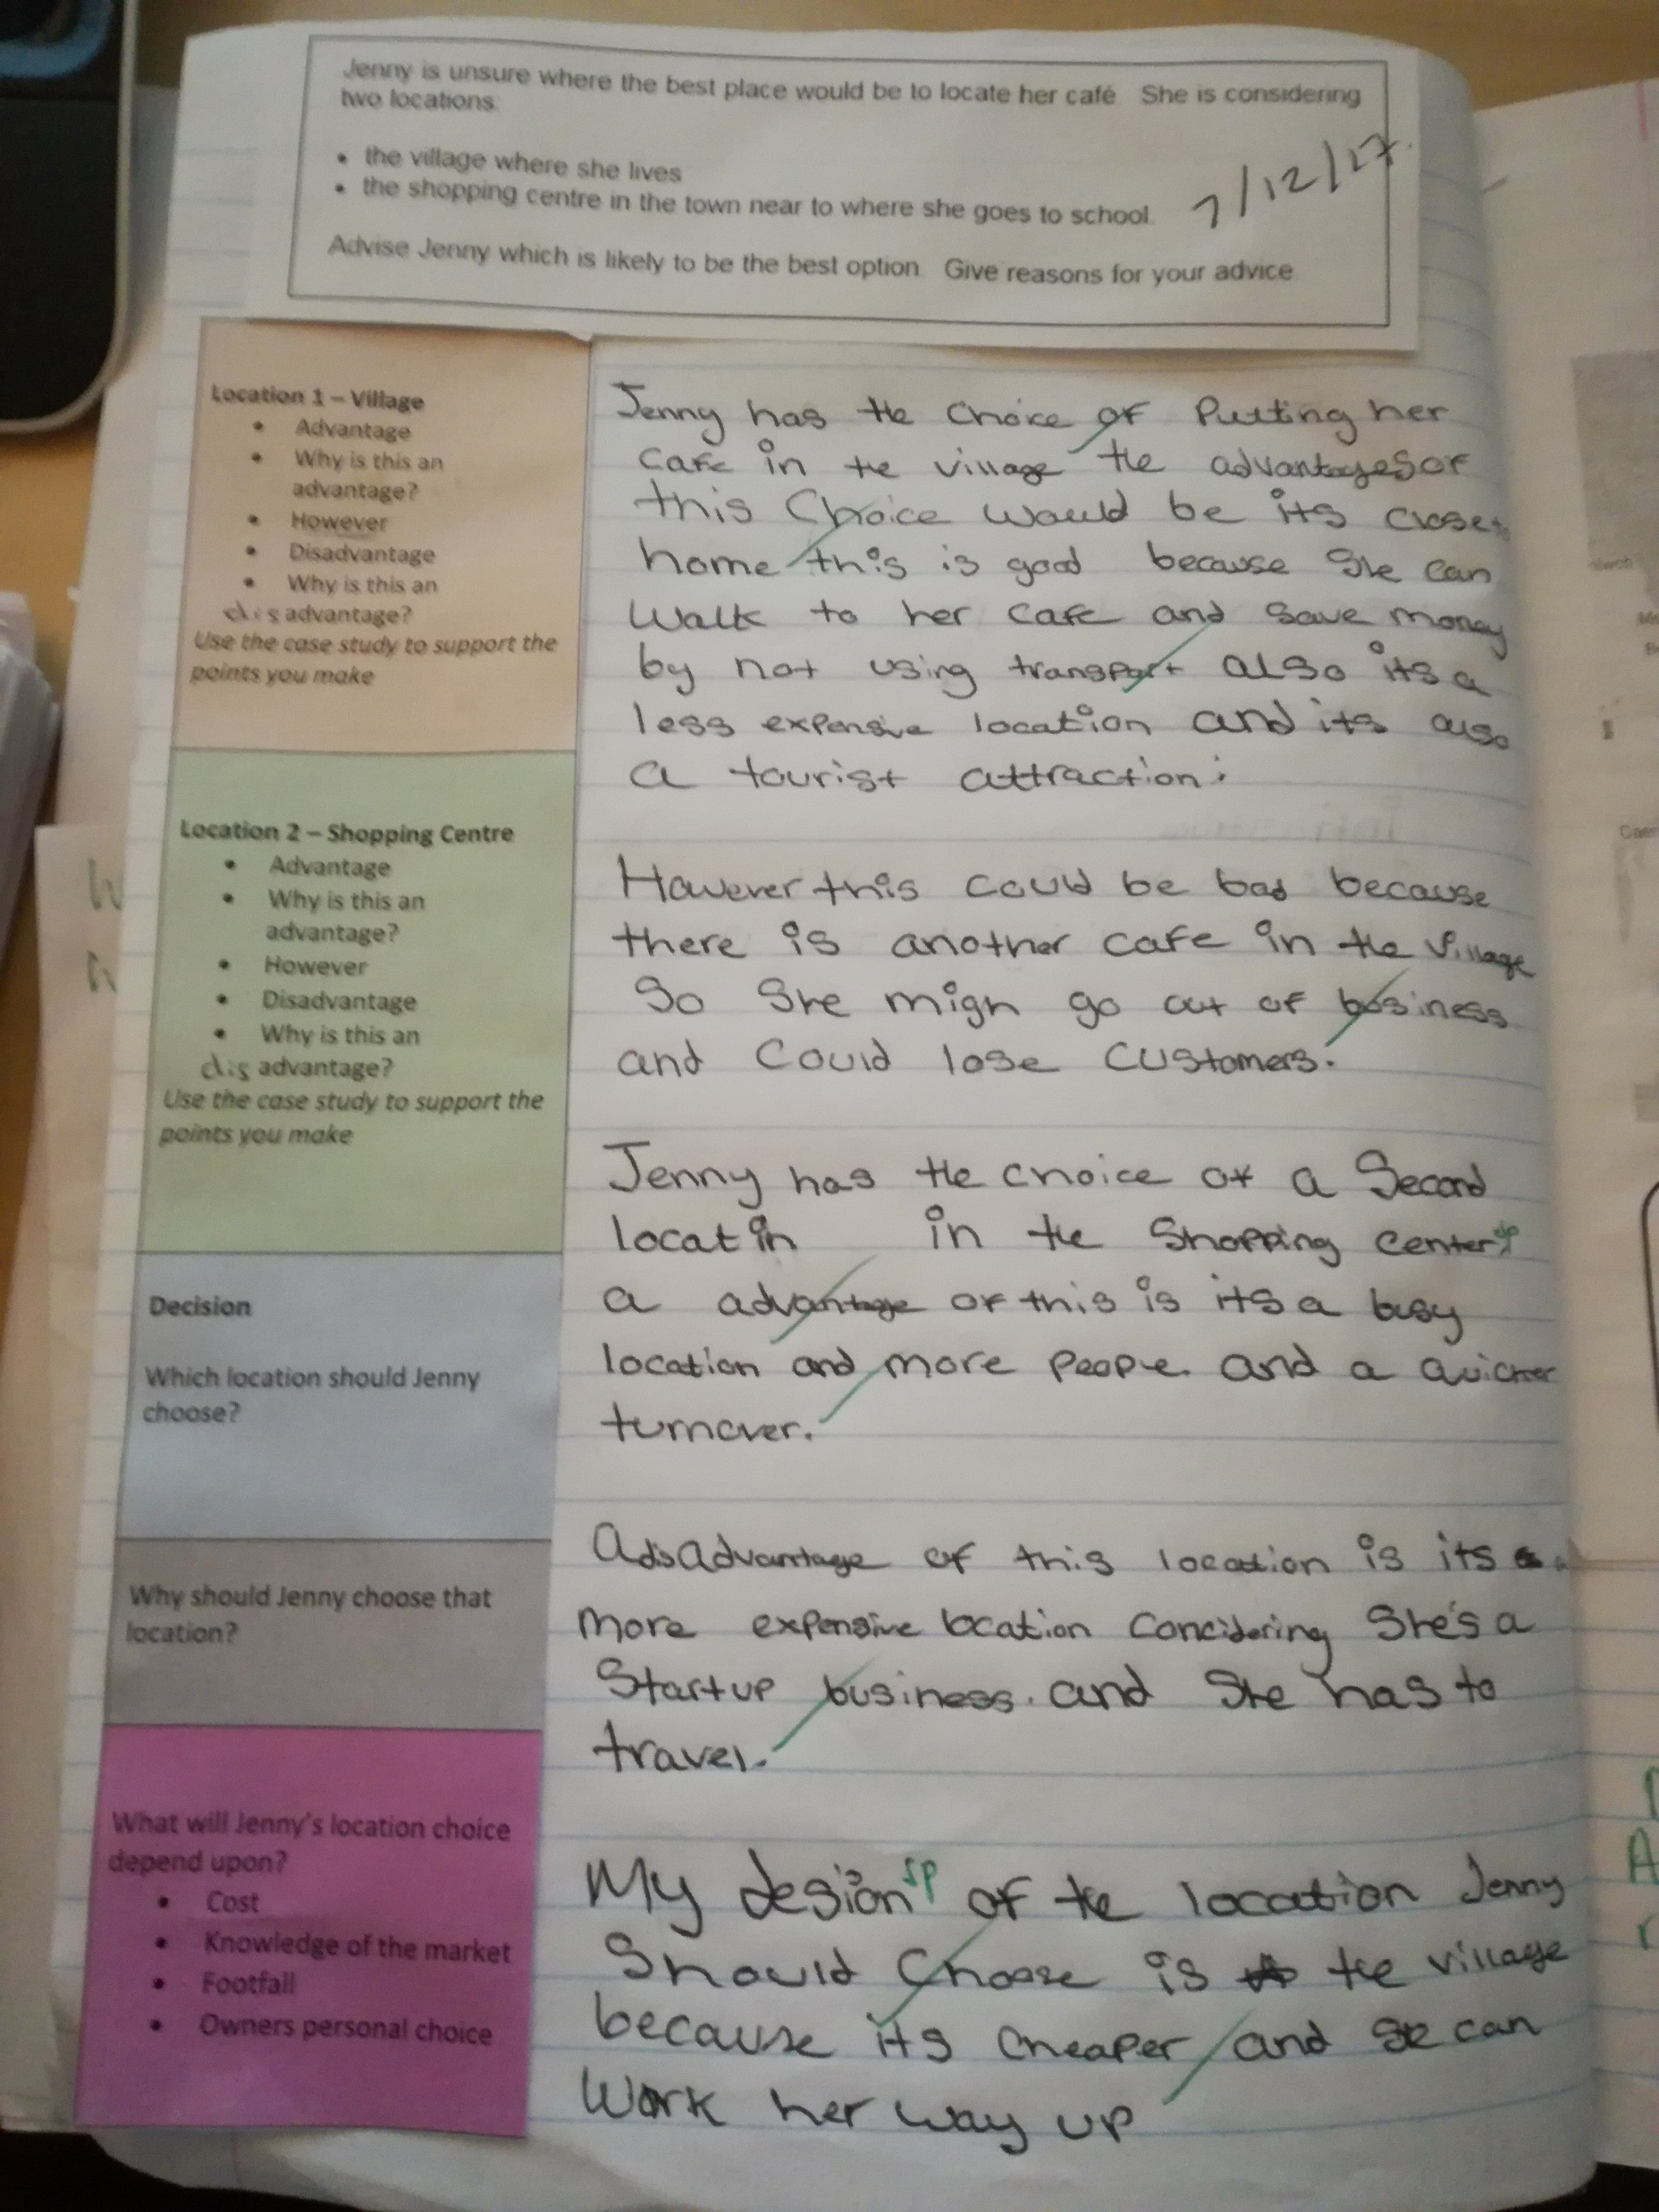 Jenny is unsure where the best place would be to locate her café. She is considering
two locations:
• the village where she lives
• the shopping centre in the town near to where she goes to school.
7/12/17
Advise Jenny which is likely to be the best option. Give reasons for your advice.
Location 1 – Village
• Advantage
• Why is this an
advantage?
• However
• Disadvantage
• Why is this an
dis advantage?
Use the case study to support the
points you make
Location 2 – Shopping Centre
• Advantage
• Why is this an
advantage?
• However
• Disadvantage
• Why is this an
dis advantage?
Use the case study to support the
points you make
Decision
Which location should Jenny
choose?
Why should Jenny choose that
location?
What will Jenny's location choice
depend upon?
• Cost
• Knowledge of the market
• Footfall
• Owners personal choice
Jenny has the choice of Putting her
cafe in the village the advantages of
this Choice would be its close
home this is good because She can
Walk to her cafe and save money
by not using transport also its a
less expensive location and its also
a tourist attraction.
However this could be bad because
there is another cafe in the village
So She migh go out of business
and could lose customers.
Jenny has the choice of a Second
locatin in the Shopping center sp
a advantage of this is its a busy
location and more people. and a quicker
turnover.
A disadvantage of this location is its a
more expensive location concidering She's a
Startup business. and She has to
travel.
My desion sp of the location Jenny
Should Choose is the village
because its cheaper and se can
Work her way up